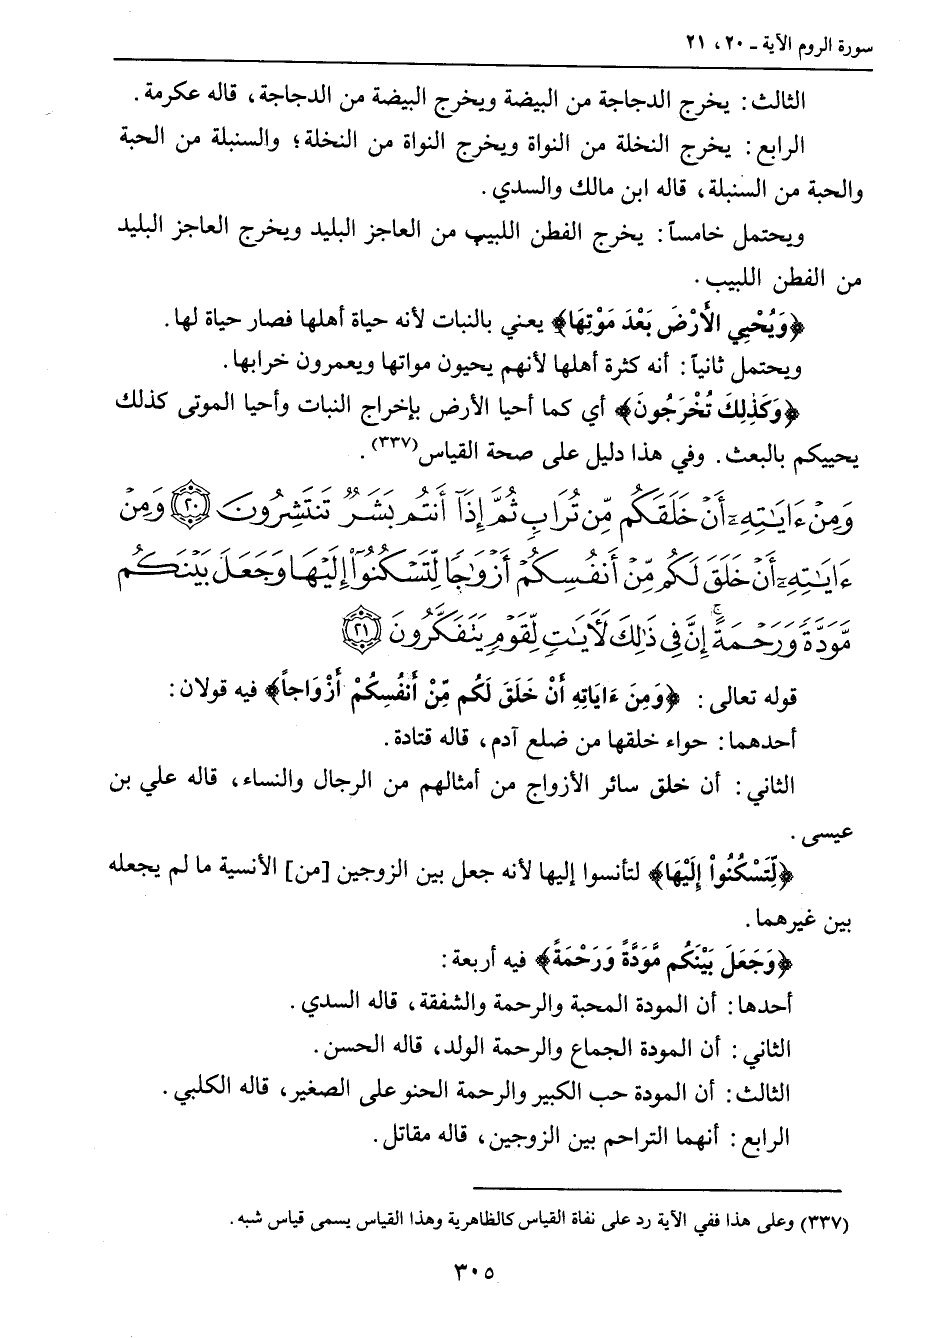 سورة الروم الآية ـ ٢٠، ٢١
الثالث: يخرج الدجاجة من البيضة ويخرج البيضة من الدجاجة، قاله عكرمة.
الرابع: يخرج النخلة من النواة ويخرج النواة من النخلة؛ والسنبلة من الحبة
والحبة من السنبلة، قاله ابن مالك والسدي.
ويحتمل خامساً: يخرج الفطن اللبيب من العاجز البليد ويخرج العاجز البليد
من الفطن اللبيب.
﴿وَيُحْيِي الْأَرْضَ بَعْدَ مَوْتِهَا﴾ يعني بالنبات لأنه حياة أهلها فصار حياة لها.
ويحتمل ثانياً: أنه كثرة أهلها لأنهم يحيون مواتها ويعمرون خرابها.
﴿وَكَذَٰلِكَ تُخْرَجُونَ﴾ أي كما أحيا الأرض بإخراج النبات وأحيا الموتى كذلك
يحييكم بالبعث. وفي هذا دليل على صحة القياس(٣٣٧).
وَمِنْ ءَايَـٰتِهِۦٓ أَنْ خَلَقَكُم مِّن تُرَابٍ ثُمَّ إِذَآ أَنتُم بَشَرٌ تَنتَشِرُونَ ﴿٢٠﴾ وَمِنْ
ءَايَـٰتِهِۦٓ أَنْ خَلَقَ لَكُم مِّنْ أَنفُسِكُمْ أَزْوَٰجًا لِّتَسْكُنُوٓا۟ إِلَيْهَا وَجَعَلَ بَيْنَكُم
مَّوَدَّةً وَرَحْمَةً ۚ إِنَّ فِى ذَٰلِكَ لَـَٔايَـٰتٍ لِّقَوْمٍ يَتَفَكَّرُونَ ﴿٢١﴾
قوله تعالى: ﴿وَمِنْ ءَايَاتِهِ أَنْ خَلَقَ لَكُم مِّنْ أَنفُسِكُمْ أَزْوَاجاً﴾ فيه قولان:
أحدهما: حواء خلقها من ضلع آدم، قاله قتادة.
الثاني: أن خلق سائر الأزواج من أمثالهم من الرجال والنساء، قاله علي بن
عيسى.
﴿لِّتَسْكُنُواْ إِلَيْهَا﴾ لتأنسوا إليها لأنه جعل بين الزوجين [من] الأنسية ما لم يجعله
بين غيرهما.
﴿وَجَعَلَ بَيْنَكُم مَّوَدَّةً وَرَحْمَةً﴾ فيه أربعة:
أحدها: أن المودة المحبة والرحمة والشفقة، قاله السدي.
الثاني: أن المودة الجماع والرحمة الولد، قاله الحسن.
الثالث: أن المودة حب الكبير والرحمة الحنو على الصغير، قاله الكلبي.
الرابع: أنهما التراحم بين الزوجين، قاله مقاتل.
(٣٣٧) وعلى هذا ففي الآية رد على نفاة القياس كالظاهرية وهذا القياس يسمى قياس شبه.
٣٠٥